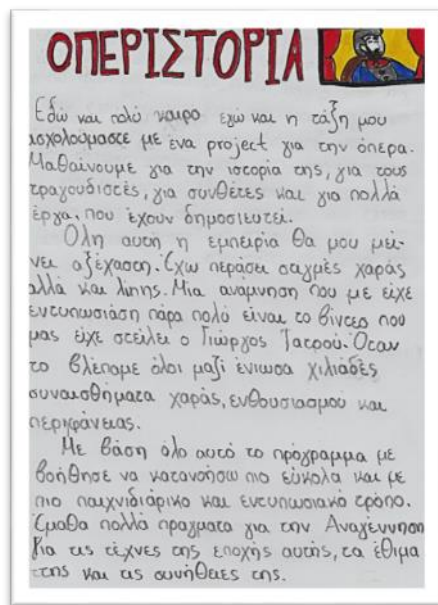 ΟΠΕΡΙΣΤΟΡΙΑ
Εδώ και πολύ καιρο εγώ και η τάξη μου
ασχολούμαστε με ένα project για την όπερα.
Μαθαίνουμε για την ιστορία της, για τους
τραγουδιστές, για συνθέτες και για πολλά
έργα, που έχουν δημοσιευτεί.
Όλη αυτή η εμπειρία θα μου μεί-
νει αξέχαστη. Έχω περάσει στιγμές χαράς
αλλά και λύπης. Μια ανάμνηση που με είχε
εντυπωσιάσει πάρα πολύ είναι το βίντεο που
μας είχε στείλει ο Γιώργος Ιατρού. Όταν
το βλέπαμε όλοι μαζί ένιωσα χιλιάδες
συναισθήματα χαράς, ενθουσιασμού και
περηφάνειας.
Με βάση όλο αυτό το πρόγραμμα με
βοήθησε να κατανοήσω πιο εύκολα και με
πιο παιχνιδιάρικο και εντυπωσιακό τρόπο.
Έμαθα πολλά πράγματα για την Αναγέννηση
για τις τέχνες της εποχής αυτής, τα έθιμα
της και τις συνήθειες της.